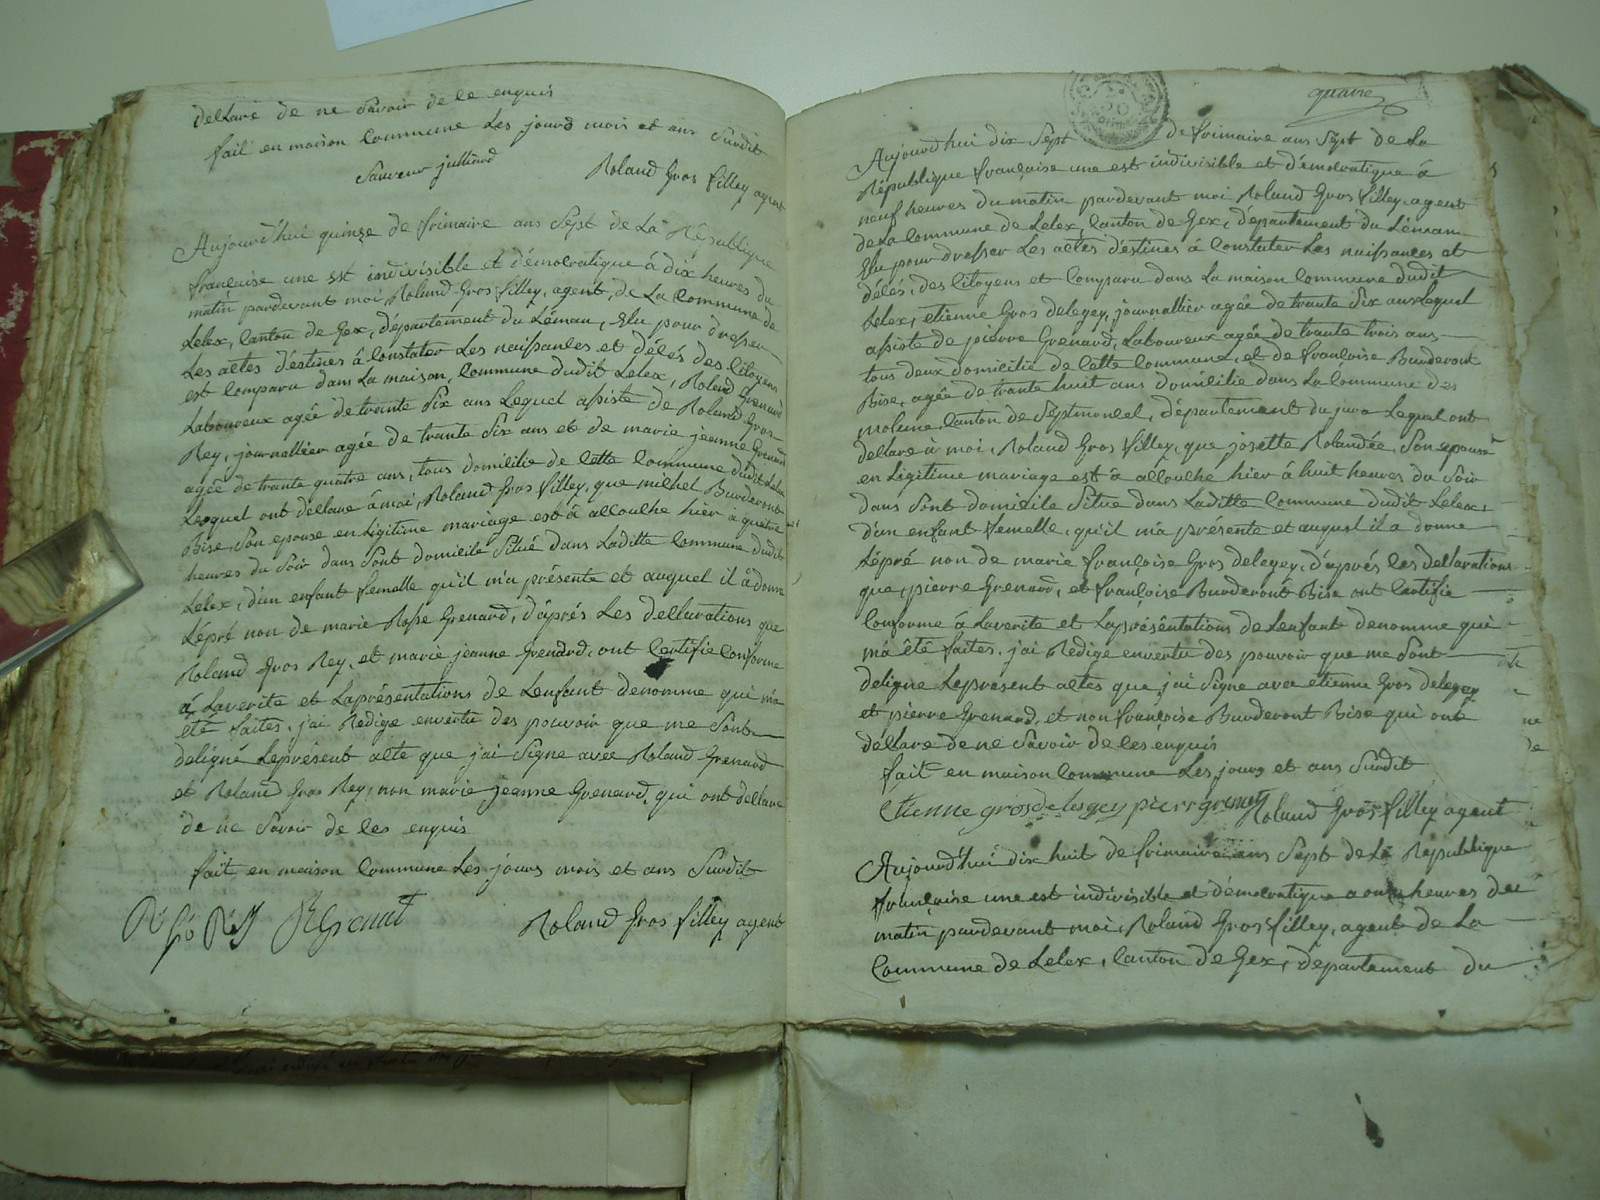 dellare de ne Savoir de le enquis
fait en maison Commune Les jours mois et ans Surdit
Sauveur julliard
Roland Gros filley agent
Aujourd'hui quinze de frimaire ans Sept de La République
françaises une est indivisible et démocratique à dix heures du
matin pardevant moi, Roland Gros filley, agent, de La Commune de
Lelex, Canton de Gex, département du Léman, Elu pour dresser
Les actes déstinés á Constater Les naissances et délés des Citoyens
est Comparu dans La maison, Commune dudit Lelex, Roland Grenard
Laboureux agée de trante Six ans Lequel assiste de Roland Gros
Rey, journallier agée de trante Six ans et de marie jeanne Grenard
agée de trante quatre ans, tous domicilie de Cette Commune dudit Lelex
Lesquel ont dellare à moi, Roland Gros filley, que michel Burderont
Bise Son epouse en Ligitime mariage est á allouche hier à quatre
heures du Soir dans Sont domicile Situé dans Laditte Commune dudit
Lelex, d'un enfant femelle qu'il m'a présente et auquel il à donne
Lépré non de marie Rose Grenard, d'áprés Les dellarations que
Roland Gros Rey, et marie jeanne Grenard, ont Certifie Conforme
á Laverite et Laprésentations de Lenfant denomme qui m'a
été faites, j'ai Redige envertu des pouvoir que me Sont
deligné Leprésent alte que j'ai Signe avec Roland Grenard
et Roland Gros Rey, non marie jeanne Grenard, qui ont dellare
de ne Savoir de les enquis
fait en maison Commune Les jours mois et ans Surdit
Roland Gros filley agent
quatre
Aujourd'hui dix Sept de frimaire ans Sept de La
République françaises une est indivisible et démocratique á
neuf heures du matin pardevant moi Roland Gros filley, agent
de La Commune de Lelex, Canton de Gex, département du Léman
Elu pour dresser Les actes déstines á Constater Les naissances et
délés, des Citoyens et Comparu dans La maison Commune dudit
Lelex, etienne Gros delegey, journallier agée de trante Six ans Lequel
assiste de pierre Grenard, Laboureux agée de trante trois ans
tous deux domicilié de Cette Commune, et de françoise Burderont
Bise, agée de trante huit ans domicilie dans La Commune des
molune Canton de Septmoncel, département du jura Lequel ont
dellare à moi, Roland Gros filley, que josette Rolandée, Son epouse
en Ligitime mariage est á allouche hier á huit heures du Soir
dans Sont domicile Situe dans Laditte Commune dudit Lelex,
d'un enfant femelle, qu'il m'a présente et auquel il a donne
Lépré non de marie françoise Gros delegey, d'áprés les dellarations
que, pierre Grenard, et françoise Burderont Bise ont Certifie
Conforme á Laverite et Laprésentations de Lenfant denomme qui
m'a été faites, j'ai Redige envertu des pouvoir que me Sont
deligne Leprésent altes que j'ai Signe avec etienne Gros delegey
et pierre Grenard, et non françoise Burderont Bise qui ont
déllare de ne Savoir de les enquis
fait en maison Commune Les jours et ans Surdit
Etienne gros de legey pierr grenat Roland Gros filley agent
Aujourd'hui dix huit de frimaire ans Sept de La République
françaises une est indivisible et démocratique a onze heures du
matin pardevant moi, Roland Gros filley, agent de La
Commune de Lelex, Canton de Gex, département du